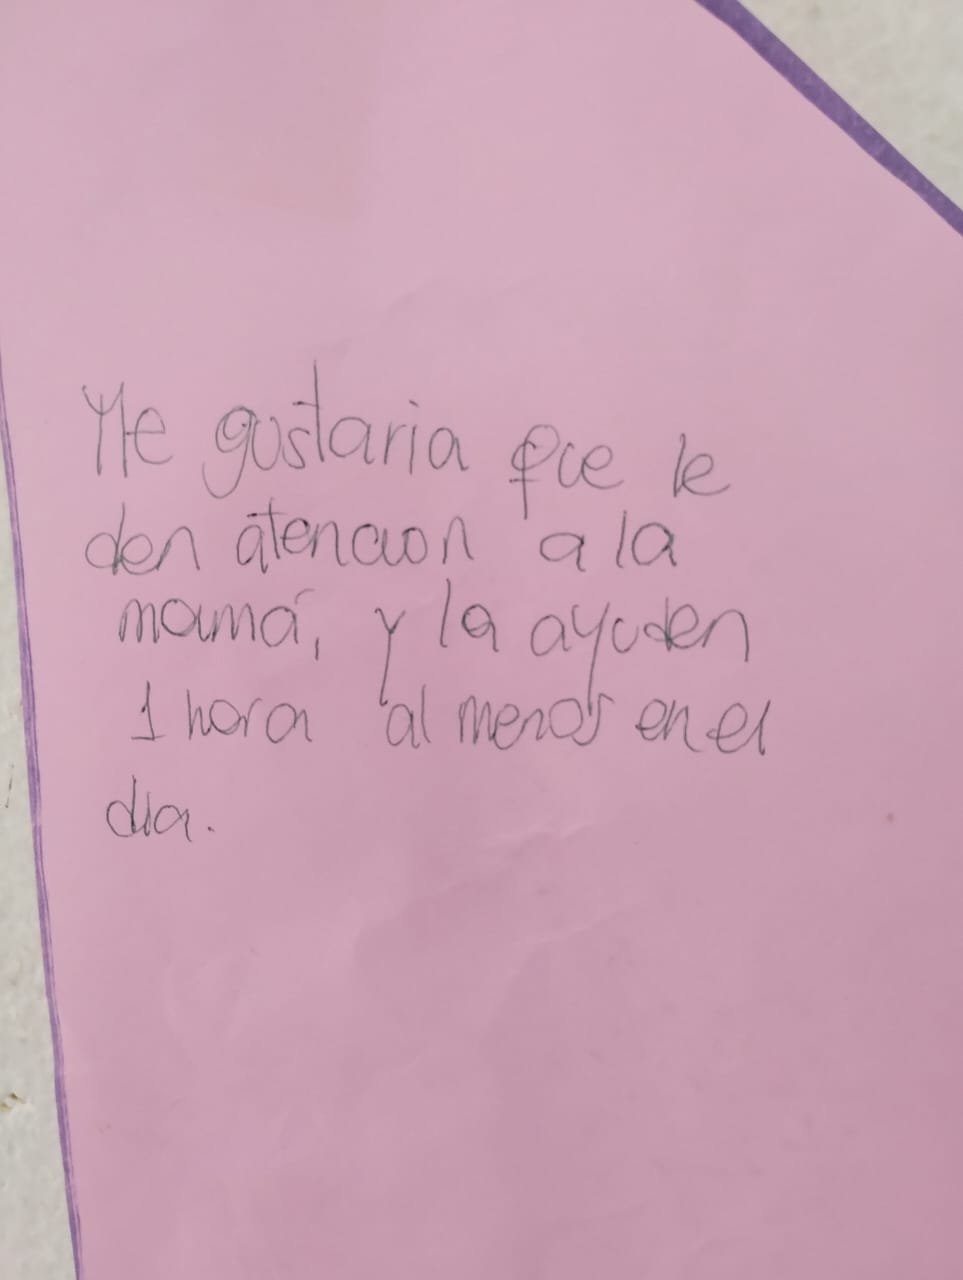 Me gustaria que le
den atencion a la
mamá, y la ayuden
1 hora al menos en el
dia.